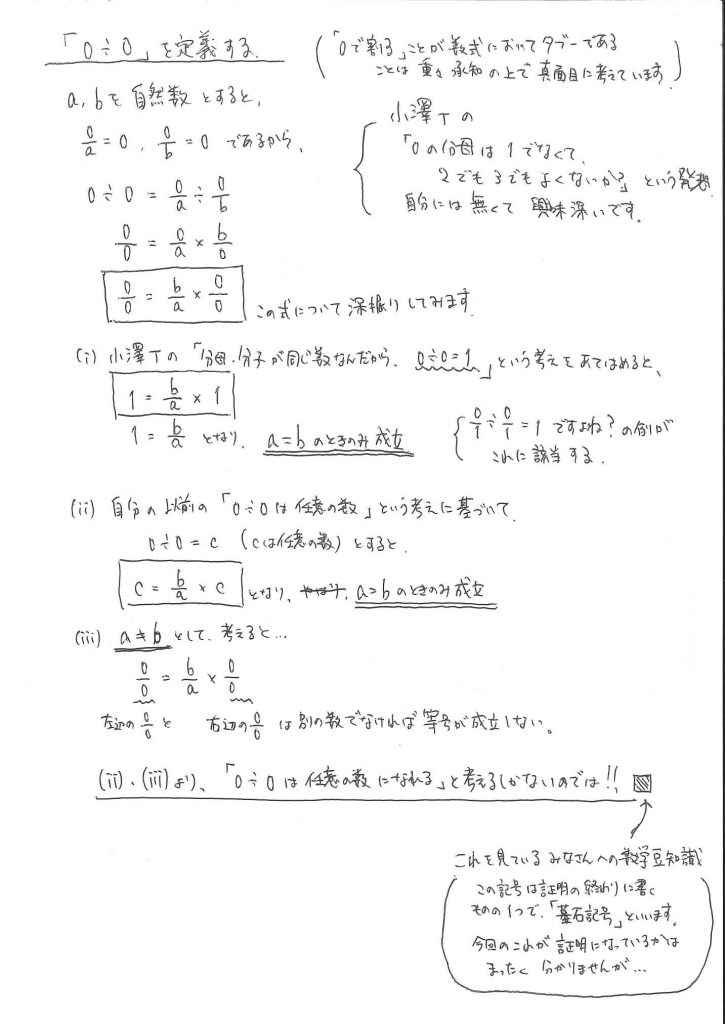 「0÷0」を定義する.
(「0で割る」ことが数式においてタブーである
ことは重々承知の上で真面目に考えています.)
a, bを自然数とすると,
0/a = 0, 0/b = 0 であるから,
0÷0 = 0/a ÷ 0/b
0/0 = 0/a × b/0
0/0 = b/a × 0/0 この式について深掘りしてみます.
小澤Tの
「0の分母は1でなくて,
2でも3でもよくないか?」という発想
自分には無くて興味深いです.
(i) 小澤Tの「分母・分子が同じ数なんだから, 0÷0=1」という考えをあてはめると、
1 = b/a × 1
1 = b/a となり, a=bのときのみ成立
0/1 ÷ 0/1 = 1 ですよね?の例が
これに該当する.
(ii) 自分の以前の「0÷0は任意の数」という考えに基づいて.
0÷0 = c (cは任意の数) とすると.
c = b/a × c となり、やはり, a=bのときのみ成立
(iii) a≠b として、考えると…
0/0 = b/a × 0/0
左辺の0/0と 右辺の0/0 は別の数でなければ等号が成立しない。
(ii)、(iii)より、「0÷0は任意の数になれる」と考えるしかないのでは!!
これを見ているみなさんへの数学豆知識
この記号は証明の終わりに書く
ものの1つで、「墓石記号」といいます。
今回のこれが証明になっているかは
まったく分かりませんが…